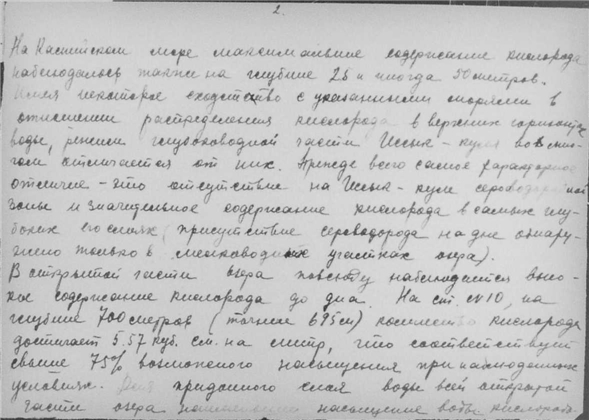 2.
На Каспийском море максимальное содержание кислорода
наблюдалось также на глубине 25 и иногда 50 метров.
Имея некоторое сходство с указанными морями в
отношении распределения кислорода в верхних горизонтах
воды, режим глубоководной части Иссык-куля во мно-
гом отличается от них. Прежде всего самое характерное
отличие - это отсутствие на Иссык-куле сероводородной
зоны и значительное содержание кислорода в самых глу-
боких его слоях (присутствие сероводорода на дне обнару-
жено только в мелководных участках озера).
В открытой части озера повсюду наблюдается высо-
кое содержание кислорода до дна. На ст. №10, на
глубине 700 метров (точнее 695м) количество кислорода
достигает 5.57 куб. см. на литр, что соответствует
свыше 75% возможного насыщения при наблюденных
условиях. Для придонного слоя воды всей открытой
части озера насыщение воды кислоро-